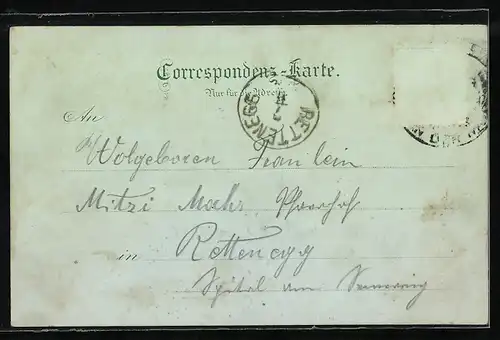 Correspondenz-Karte.
Nur für die Adresse.
RETTENEGG
An
Wolgeboren Fraulein
Mitzi Mochr Pfarrhof
in Rettenegg
Spital am Semering